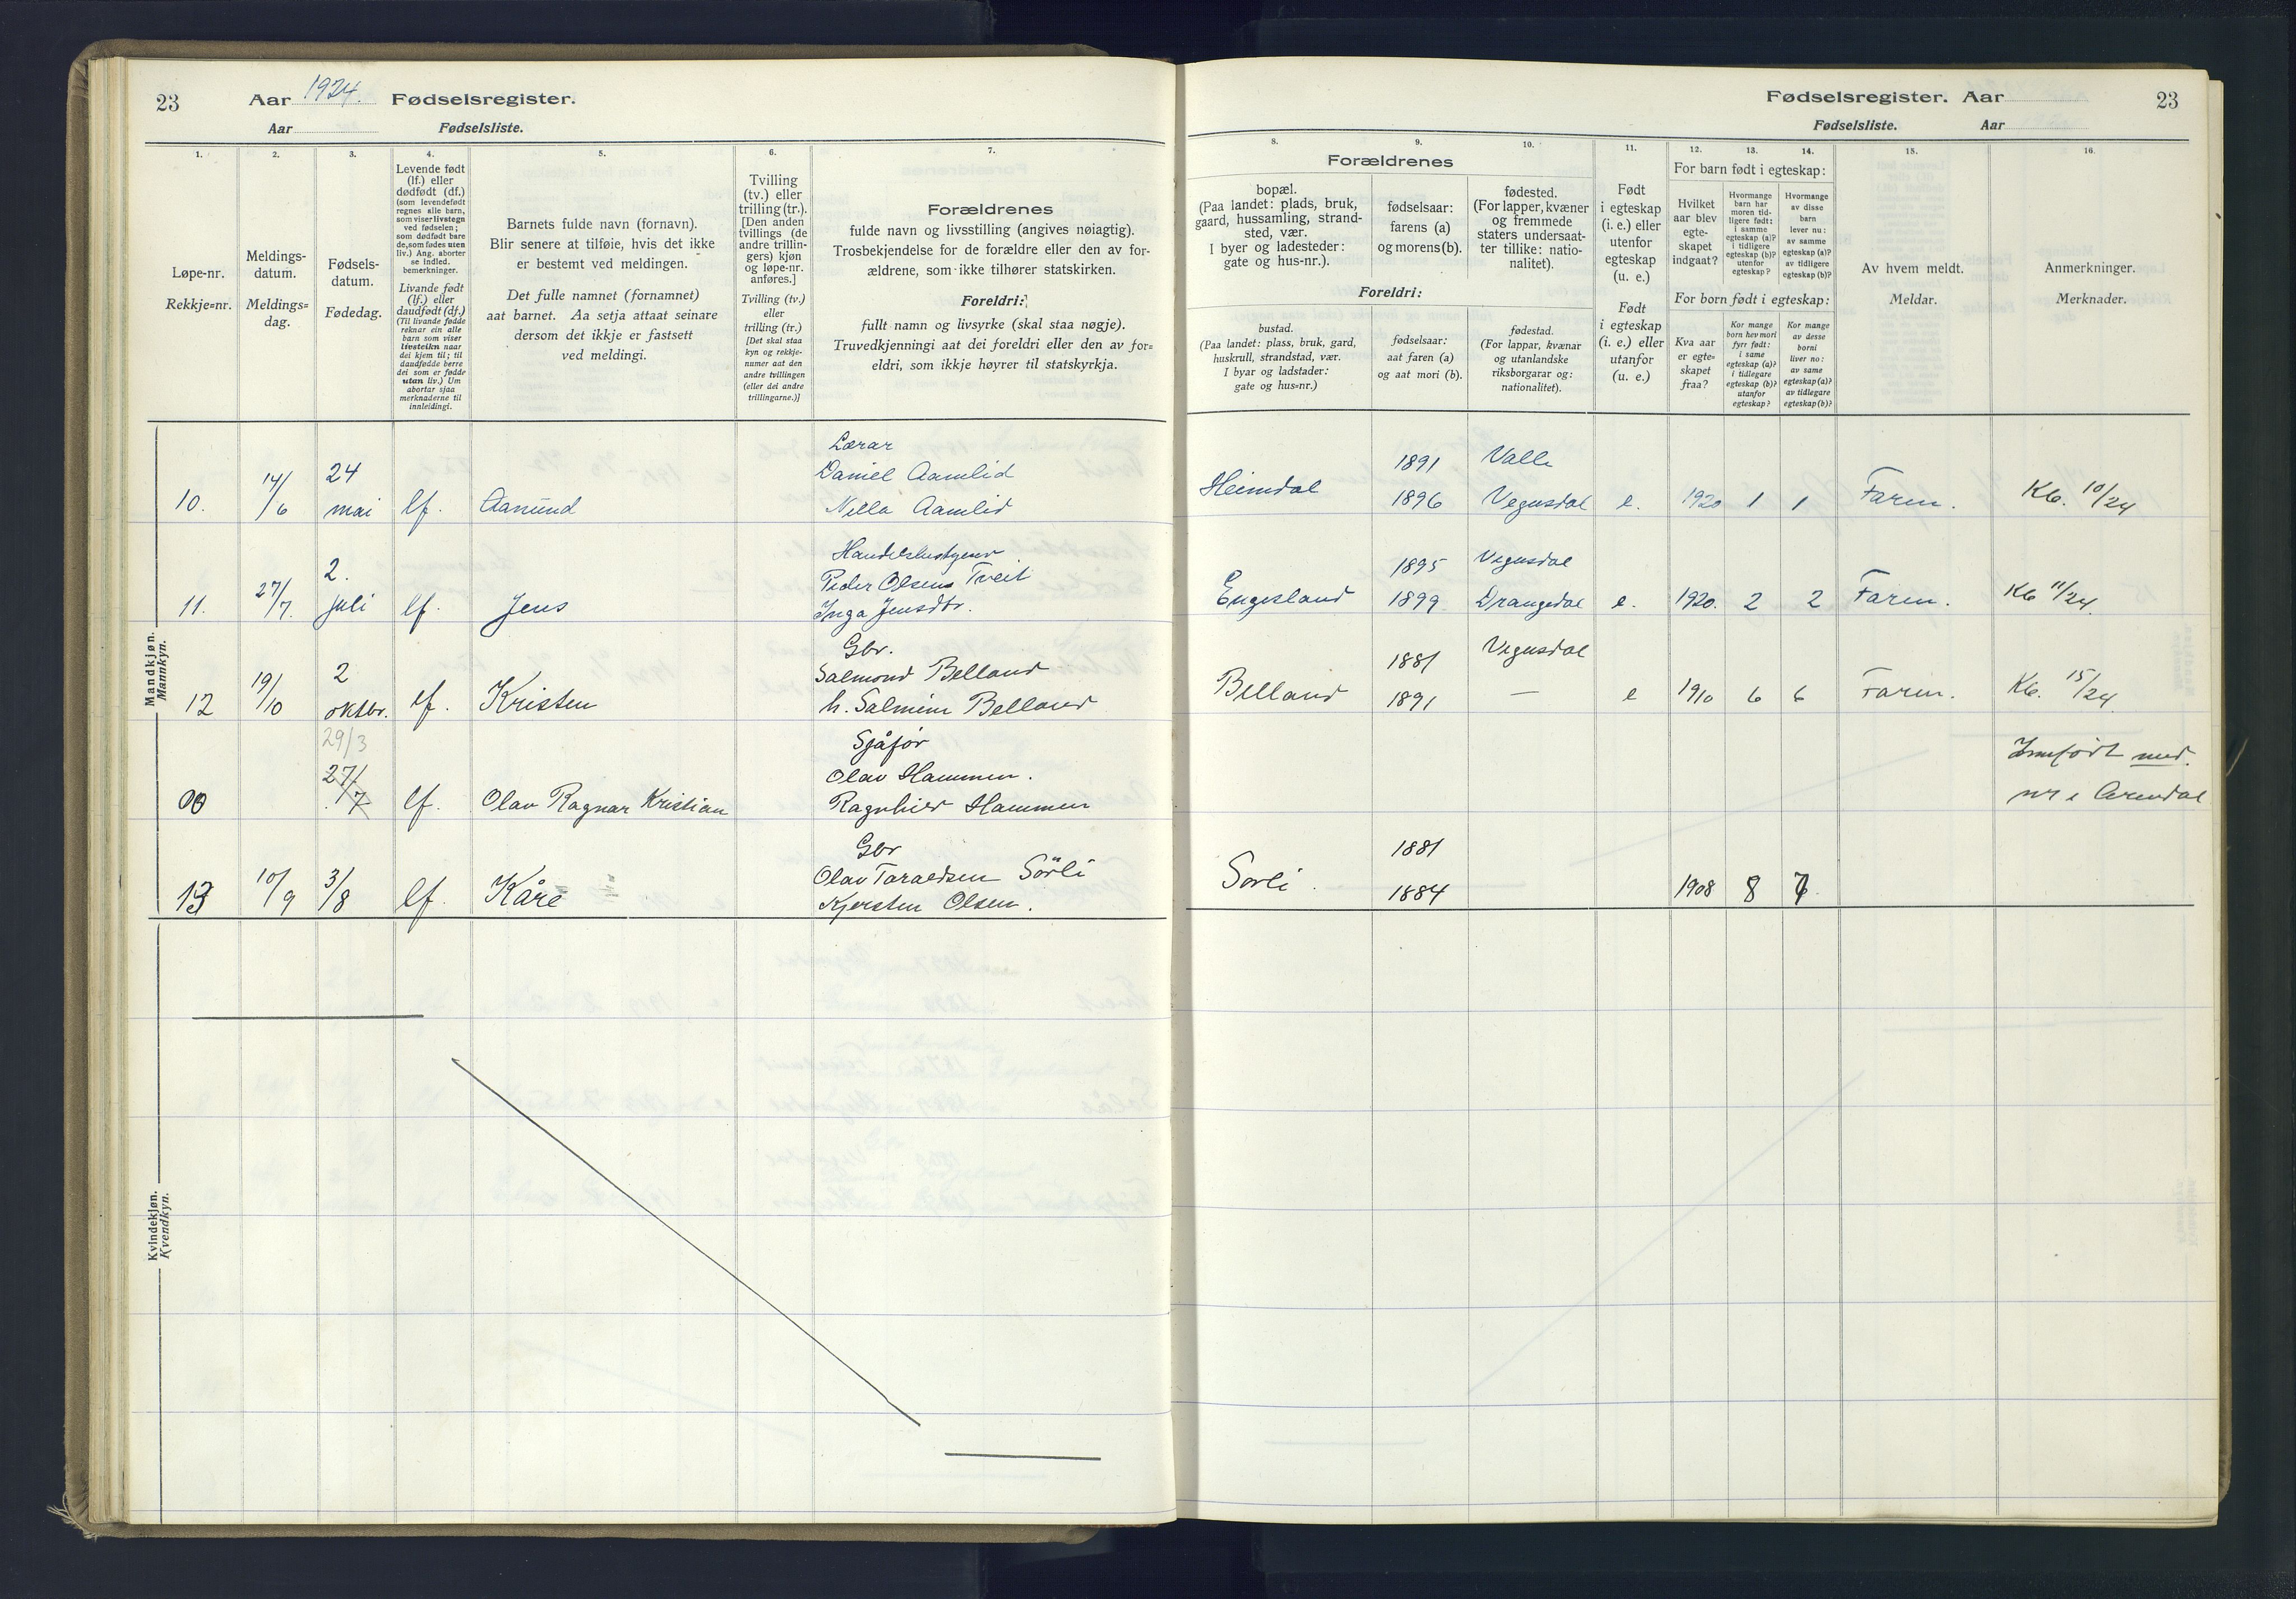 23 Aar 1924. Fødselsregister.
Aar Fødselsliste.
Fødselsregister. Aar 23
Fødselsliste. Aar
1. 2. 3. 4. 5. 6. 7.
Løpe-nr.
Rekkje=nr.
Meldings-
datum.
Meldings=
dag.
Fødsels-
datum.
Fødedag.
Levende født
(lf.) eller
dødfødt (df.)
(som levendefødt
regnes alle barn,
som viser livstegn
ved fødselen;
som dødfødt bare
de, som fødes uten
liv.) Ang. aborter
se indled.
bemerkninger.
Livande fødd
(lf.) eller
daudfødt (df.)
(Til livande fødde
reknar ein alle
barn som viser
livsteikn naar
dei kjem til; til
daudfødde berre
dei som er fødde
utan liv.) Um
abortar sjaa
merknaderne til
innleidingi.
Barnets fulde navn (fornavn).
Blir senere at tilføie, hvis det ikke
er bestemt ved meldingen.
Det fulle namnet (fornamnet)
aat barnet. Aa setja attaat seinare
dersom det ikkje er fastsett
ved meldingi.
Tvilling
(tv.) eller
trilling (tr.).
[Den anden
tvillings (de
andre trillin-
gers) kjøn
og løpe-nr.
anføres.]
Tvilling (tv.)
eller
trilling (tr.)
[Det skal staa
kyn og rekkje-
numer aat den
andre tvillingen
(eller dei andre
trillingarne.)]
Forældrenes
fulde navn og livsstilling (angives nøiagtig).
Trosbekjendelse for de forældre eller den av for-
ældrene, som ikke tilhører statskirken.
Foreldri:
fullt namn og livsyrke (skal staa nøgje).
Truvedkjenningi aat dei foreldri eller den av for=
eldri, som ikkje høyrer til statskyrkja.
8. 9. 10. 11. 12. 13. 14. 15. 16.
Forældrenes
bopæl.
(Paa landet: plads, bruk,
gaard, hussamling, strand-
sted, vær.
I byer og ladesteder:
gate og hus-nr.).
fødselsaar:
farens (a)
og morens (b).
fødested.
(For lapper, kvæner
og fremmede
staters undersaat-
ter tillike: natio-
nalitet).
Foreldri:
bustad.
(Paa landet: plass, bruk, gard,
huskrull, strandstad, vær.
I byar og ladstader:
gate og hus=nr.)
fødselsaar:
aat faren (a)
og aat mori (b).
fødestad.
(For lappar, kvænar
og utanlandske
riksborgarar og:
nationalitet).
Født
i egteskap
(i. e.) eller
utenfor
egteskap
(u. e.)
Født
i egteskap
(i. e.) eller
utanfor
(u. e.)
For barn født i egteskap:
Hvilket
aar blev
egte-
skapet
indgaat?
Hvormange
barn har
moren tid-
ligere født:
i samme
egteskap (a)?
i tidligere
egteskap (b)?
utenfor
egteskap?
Hvormange
av disse
barn
lever nu:
av samme
egteskap (a)?
av tidligere
egteskap (b)?
For born født i egteskap:
Kva aar
er egte=
skapet
fraa?
Kor mange
born hev mori
fyrr født:
i same
egteskap (a)?
i tidlegare
egteskap (b)?
utanfor
egteskap?
Kor mange
av desse
borni
liver no:
av same
egteskap (a)?
av tidlegare
egteskap (b)?
Av hvem meldt.
Meldar.
Anmerkninger.
Merknader.
Mandkjøn.
Mannkyn.
Lærar
14/6 24 Daniel Aamlid 1891 Valle
10. mai lf. Aamund Nilla Aamlid Heimdal 1896 Vegusdal e. 1920 1 1 Faren. Kb. 10/24
2. Peder Olsens Tveit 1895 Vegusdal
11. 27/7. juli lf. Jens Inga Jensdtr. Engesland 1899 Drangedal e. 1920. 2 2 Faren. Kb 11/24.
Gbr. Vegusdal
2 Salmond Belland 1881
12 19/10 oktbr. lf. Kristen h. Salmine Belland Belland 1891 — e 1910 6 6 Faren. Kb. 15/24
29/3 Sjåfør Innført med.
27/7 Olav Hammen.
00 lf. Olav Ragnar Kristian Ragnhild Hammen nr i Arendal
Gbr 1881
Olav Taraldsen Sørli
13 10/9 3/8 lf. Kåre Kjersten Olsen. Sørli. 1884 1908 8 7.
Kvindekjøn.
Kvendkyn.